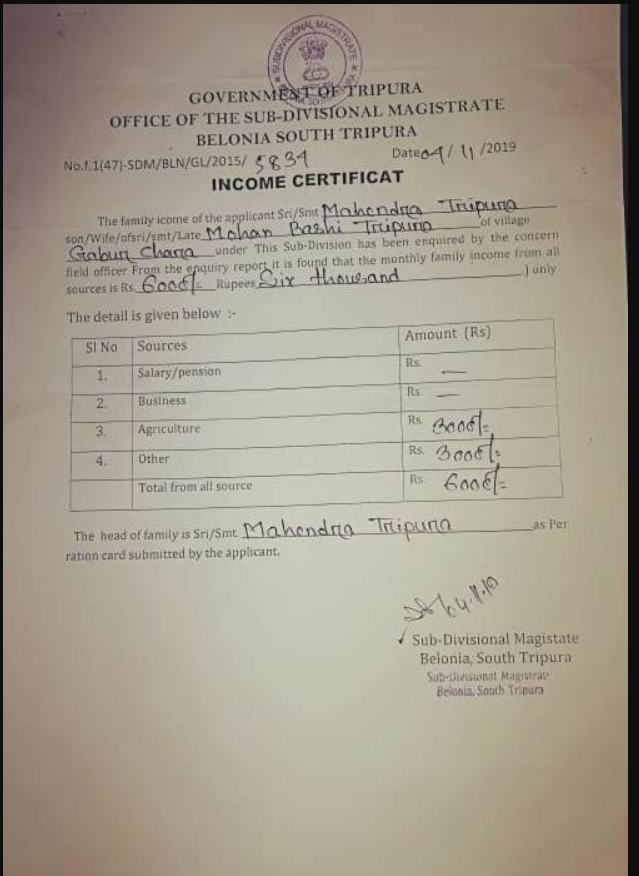 SUBDIVISIONAL MAGISTRATE
GOVERNMENT OF TRIPURA
OFFICE OF THE SUB-DIVISIONAL MAGISTRATE
BELONIA SOUTH TRIPURA
No.f.1(47)-SDM/BLN/GL/2015/ 5834 Date 04/11/2019
INCOME CERTIFICAT
The family icome of the applicant Sri/Smt Mahendra Tripura
son/Wife/ofsri/smt/Late Mohan Bashi Tripura of village
Gabur Chara under This Sub-Division has been enquired by the concern
field officer From the enquiry report it is found that the monthly family income from all
sources is Rs. 6000/= Rupees Six thousand ) only
The detail is given below :-
Sl No Sources Amount (Rs)
1. Salary/pension Rs. —
2. Business Rs. —
3. Agriculture Rs. 3000/=
4. Other Rs. 3000/=
Total from all source Rs. 6000/=
The head of family is Sri/Smt. Mahendra Tripura as Per
ration card submitted by the applicant.
04.11.19
Sub-Divisional Magistate
Belonia, South Tripura
Sub-Divisional Magistrat
Belonia, South Tripura